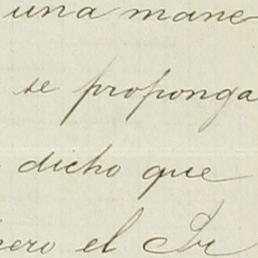 una mane
se proponga
dicho que
pero el Sr